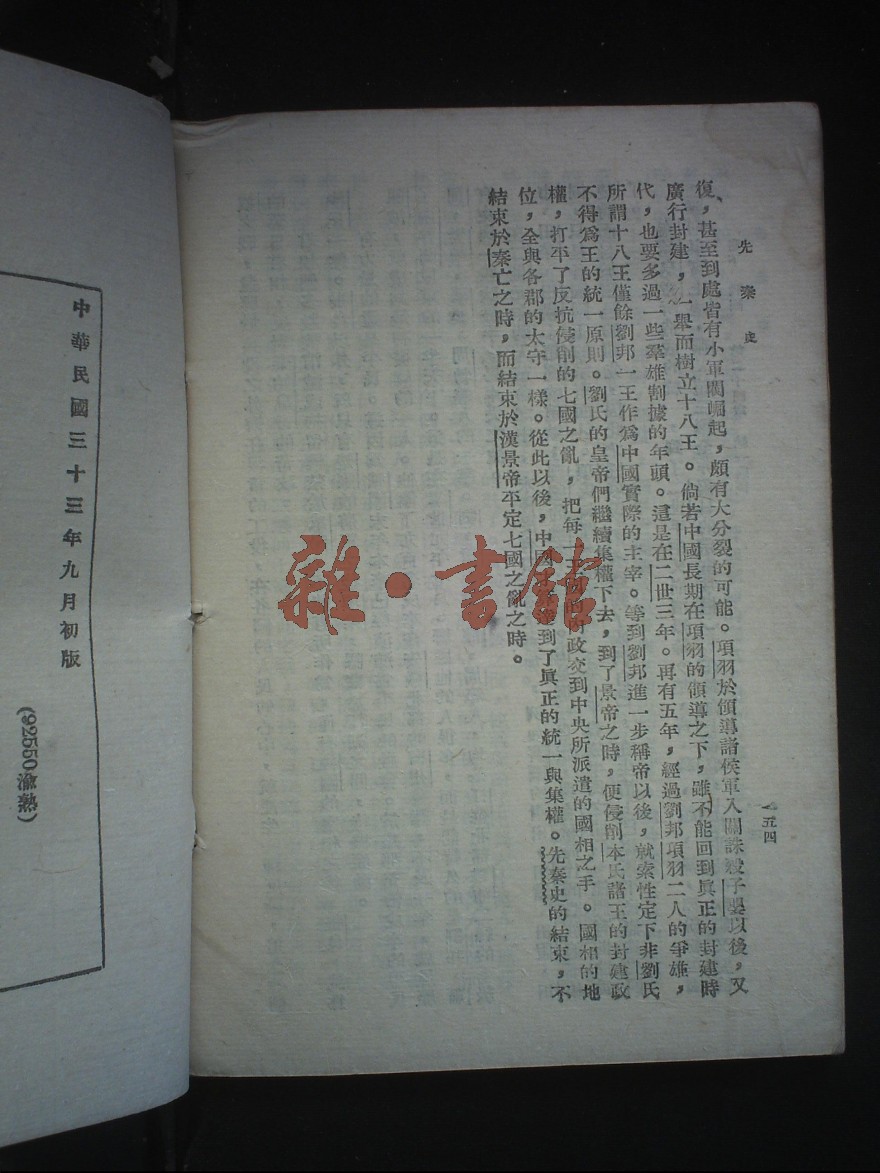 先秦史
一五四
復，甚至到處皆有小軍閥崛起，頗有大分裂的可能。項羽於領導諸侯軍入關誅殺子嬰以後，又
廣行封建，一舉而樹立十八王。倘若中國長期在項羽的領導之下，雖不能回到眞正的封建時
代，也要多過一些羣雄割據的年頭。這是在二世三年。再有五年，經過劉邦項羽二人的爭雄，
所謂十八王僅餘劉邦一王作爲中國實際的主宰。等到劉邦進一步稱帝以後，就索性定下非劉氏
不得爲王的統一原則。劉氏的皇帝們繼續集權下去，到了景帝之時，便侵削本氏諸王的封建政
權，打平了反抗侵削的七國之亂，把每一王國的內政交到中央所派遣的國相之手。國相的地
位，全與各郡的太守一樣。從此以後，中國達到了眞正的統一與集權。先秦史的結束，不
結束於秦亡之時，而結束於漢景帝平定七國之亂之時。
中華民國三十三年九月初版
(92550渝熟)
雜·書館